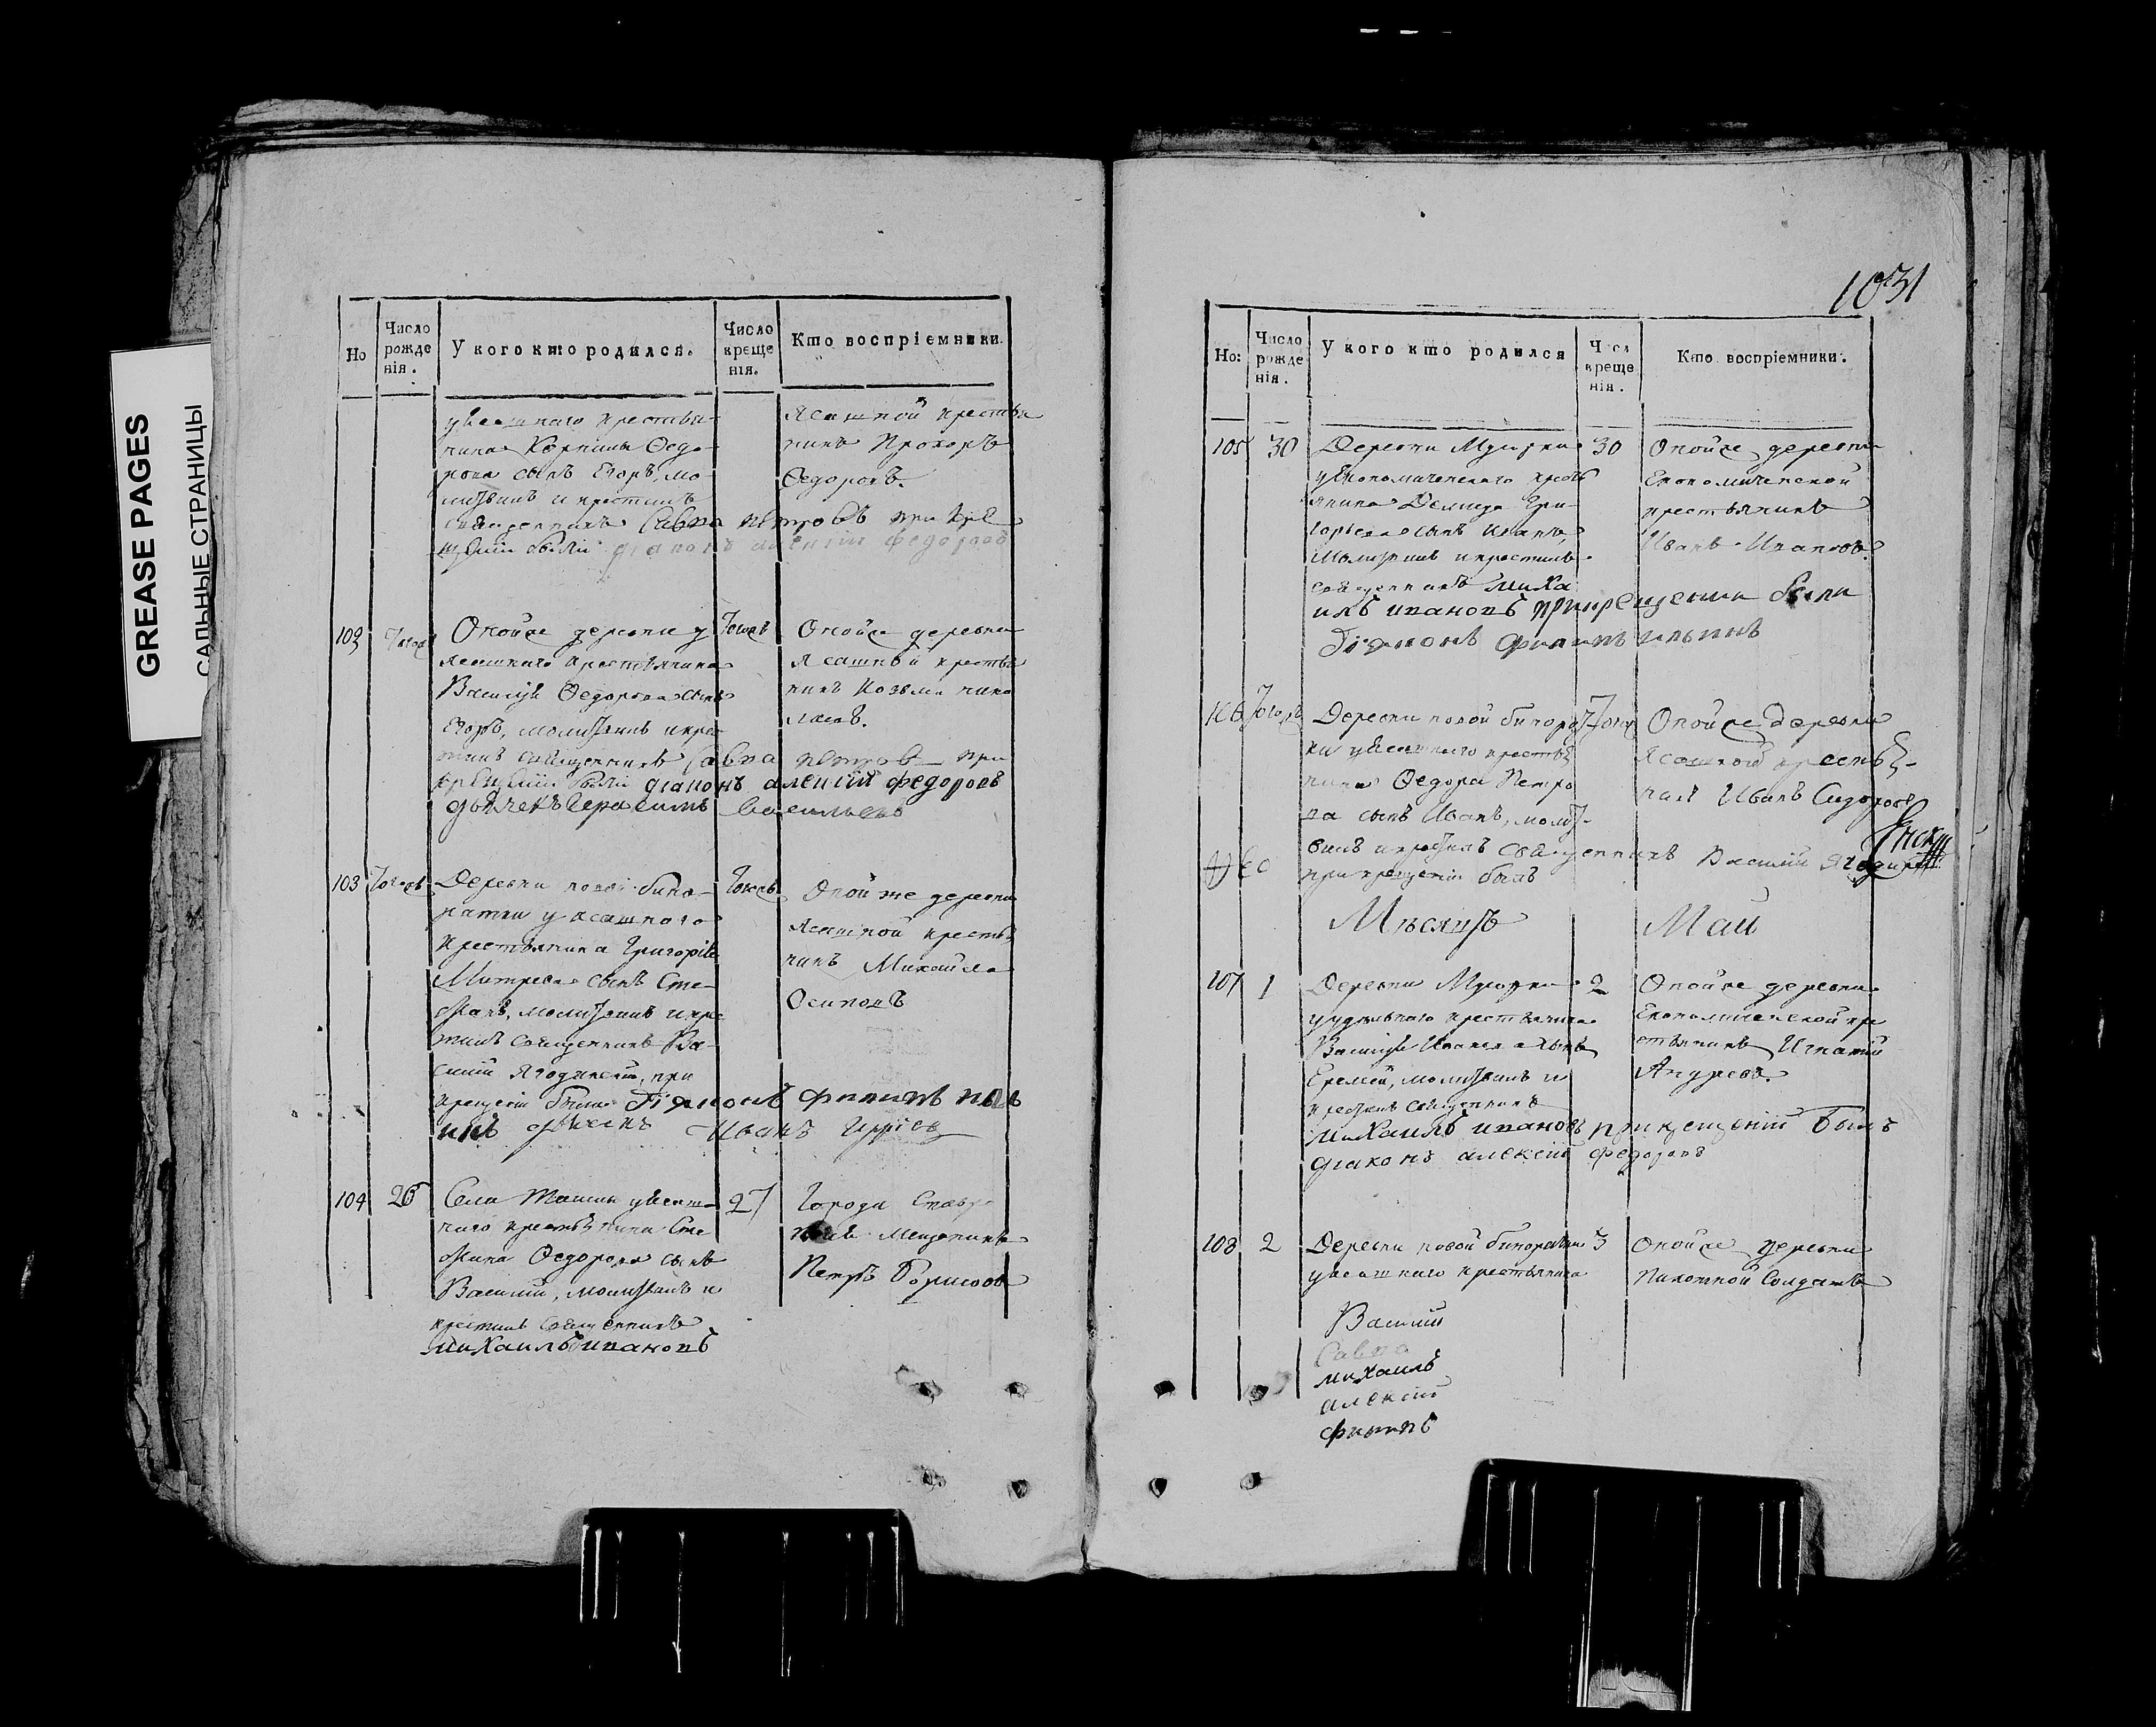 GREASE PAGES
САЛЬНЫЕ СТРАНИЦЫ
Но
Число рожде нія.
У кого кто родился.
Число креще нія.
Кто воспріемники.
уясашнаго крестья-
нина Федо-
рова сынъ Егоръ, мо-
литвилъ и крестилъ
священникъ Савва петровъ при кре
щеніи были діаконъ алексій федоровъ
Ясашной крестья
нинъ Прохоръ
Федоровъ.
102
Тогожъ
Оной же деревни у
ясашнаго крестьянина
Василія Федорова сынъ
Егоръ, молитвилъ и крес
тилъ священникъ Савва петровъ при
крещеніи были діаконъ алексій федоровъ
дьячекъ Герасимъ Васильевъ
Тогожъ
Оной же деревни
ясашной крестья
нинъ Козьма нико
лаевъ.
103
Тогожъ
Деревни новой бино-
ратки у ясашного
крестьянина Григорія
сынъ Сте-
фанъ, молитвилъ и кре
тилъ священникъ Ва-
силій Ягодинскій, при
крещеніи были діаконъ филипъ иль
инъ Иванъ
Тогожъ
Оной же деревни
Ясашной крестья
нинъ Михайла
Осиповъ
104
26
Села Ташлы уясаш-
наго крестьянина Сте
фана Федорова сынъ
Василій, молитвилъ и
крестилъ священникъ
михаилъ ивановъ
27
Города Ставро
Мещанинъ
Петръ Борисовъ
1031
Но:
Число рожде нія.
У кого кто родился
Число креще нія.
Кто воспріемники.
105
30
Деревни
уЕкономическаго кресть
янина Демида Гри
горьева сынъ Иванъ,
Молитвилъ и крестилъ
священникъ миха
илъ ивановъ при крещеніи были
Діаконъ филипъ ильинъ
30
Оной же деревни
Економической
крестьянинъ
Иванъ Ивановъ.
106
Тогожъ
Деревни новой бинорат
ки уясашнаго крестья
нина Федора Петро
ва сынъ Иванъ, молит-
вилъ и крестилъ священникъ Василій Ягодинскій
при крещеніи былъ
Тогож
Оной же деревни
Ясашной крестья-
нинъ Иванъ Сидоровъ
Мѣсяцъ Май
107
1
Деревни
у удельнаго крестьянина
Василія Иванова сынъ
Еремей, молитвилъ и
крестилъ священникъ
михаилъ ивановъ при крещеніи былъ
діаконъ алексій федоровъ
2
Оной же деревни
Економической кре
стьянинъ Игнатій
Андреевъ.
108
2
Деревни новой биноратки
уясашнаго крестьянина
3
Оной же деревни
Пихотной Солдатъ
Василій
Савва
михаилъ
алексій
филипъ